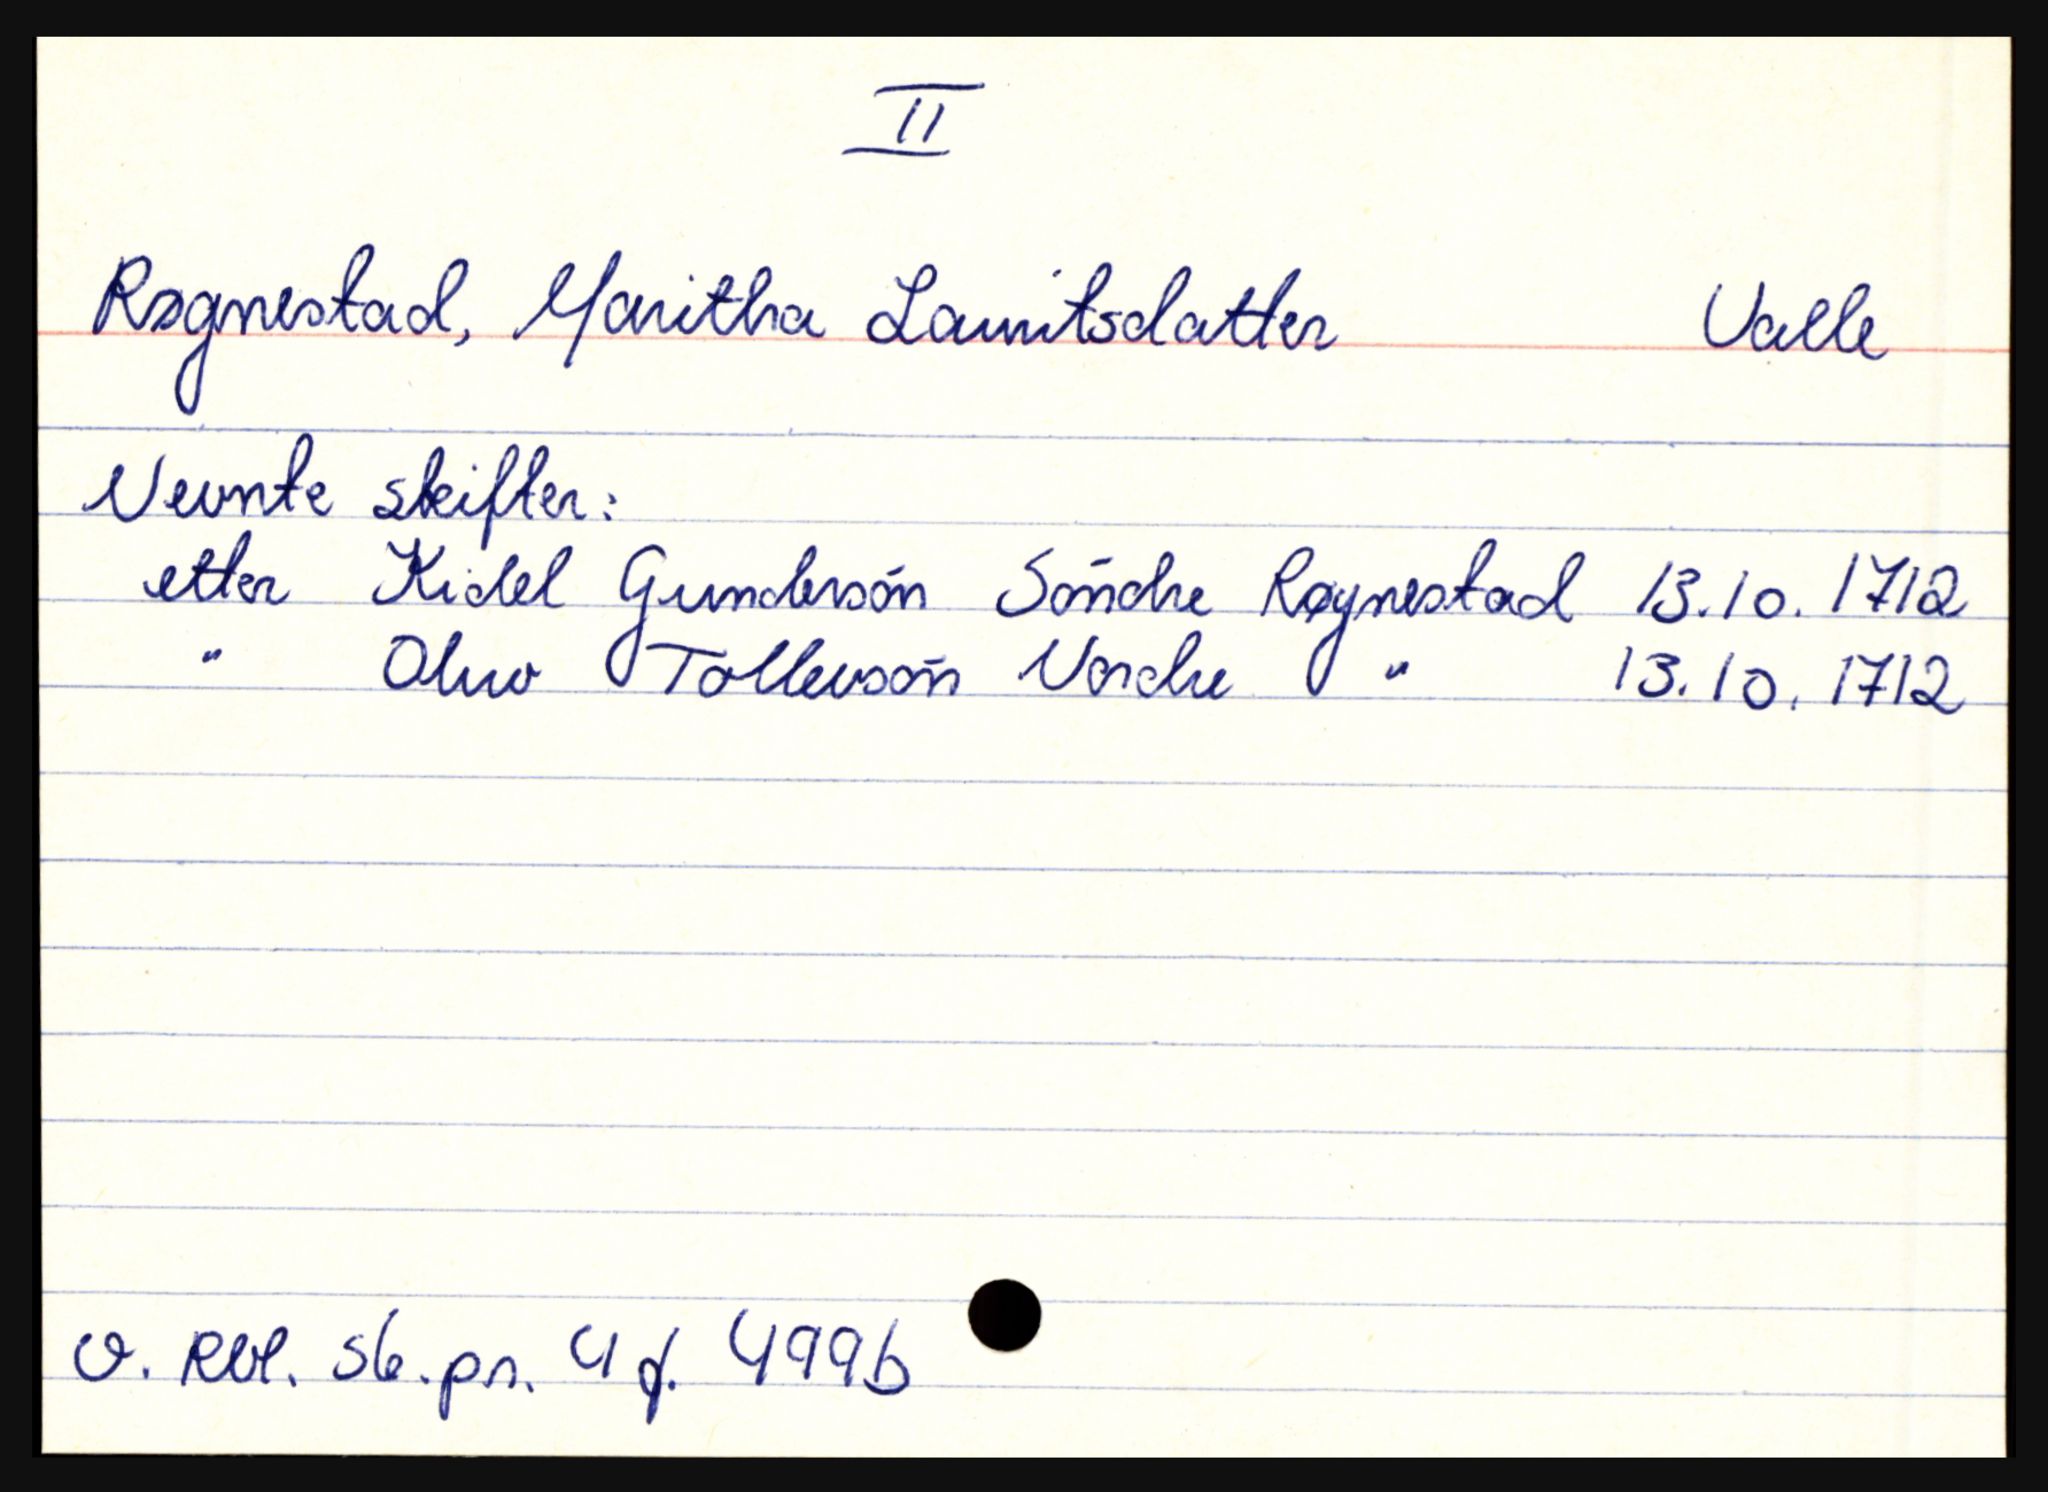 II
Røgnestad, Maritha Lauritsdatter Valle
Nevnte skifter:
etter Kidel Gundersón Söndre Røgnestad 13.10.1712
" Oluv Tollevsón Nordre " 13.10.1712
v. Rbl. sk.pr. 4 f. 499b